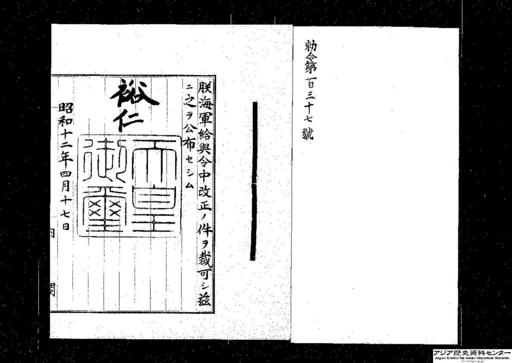 勅令第一百三十七號
朕海軍給與令中改正ノ件ヲ裁可シ茲
ニ之ヲ公布セシム
裕仁
天皇
御璽
昭和十二年四月十七日
内 閣
アジア歴史資料センター
Japan Center for Asian Historical Records